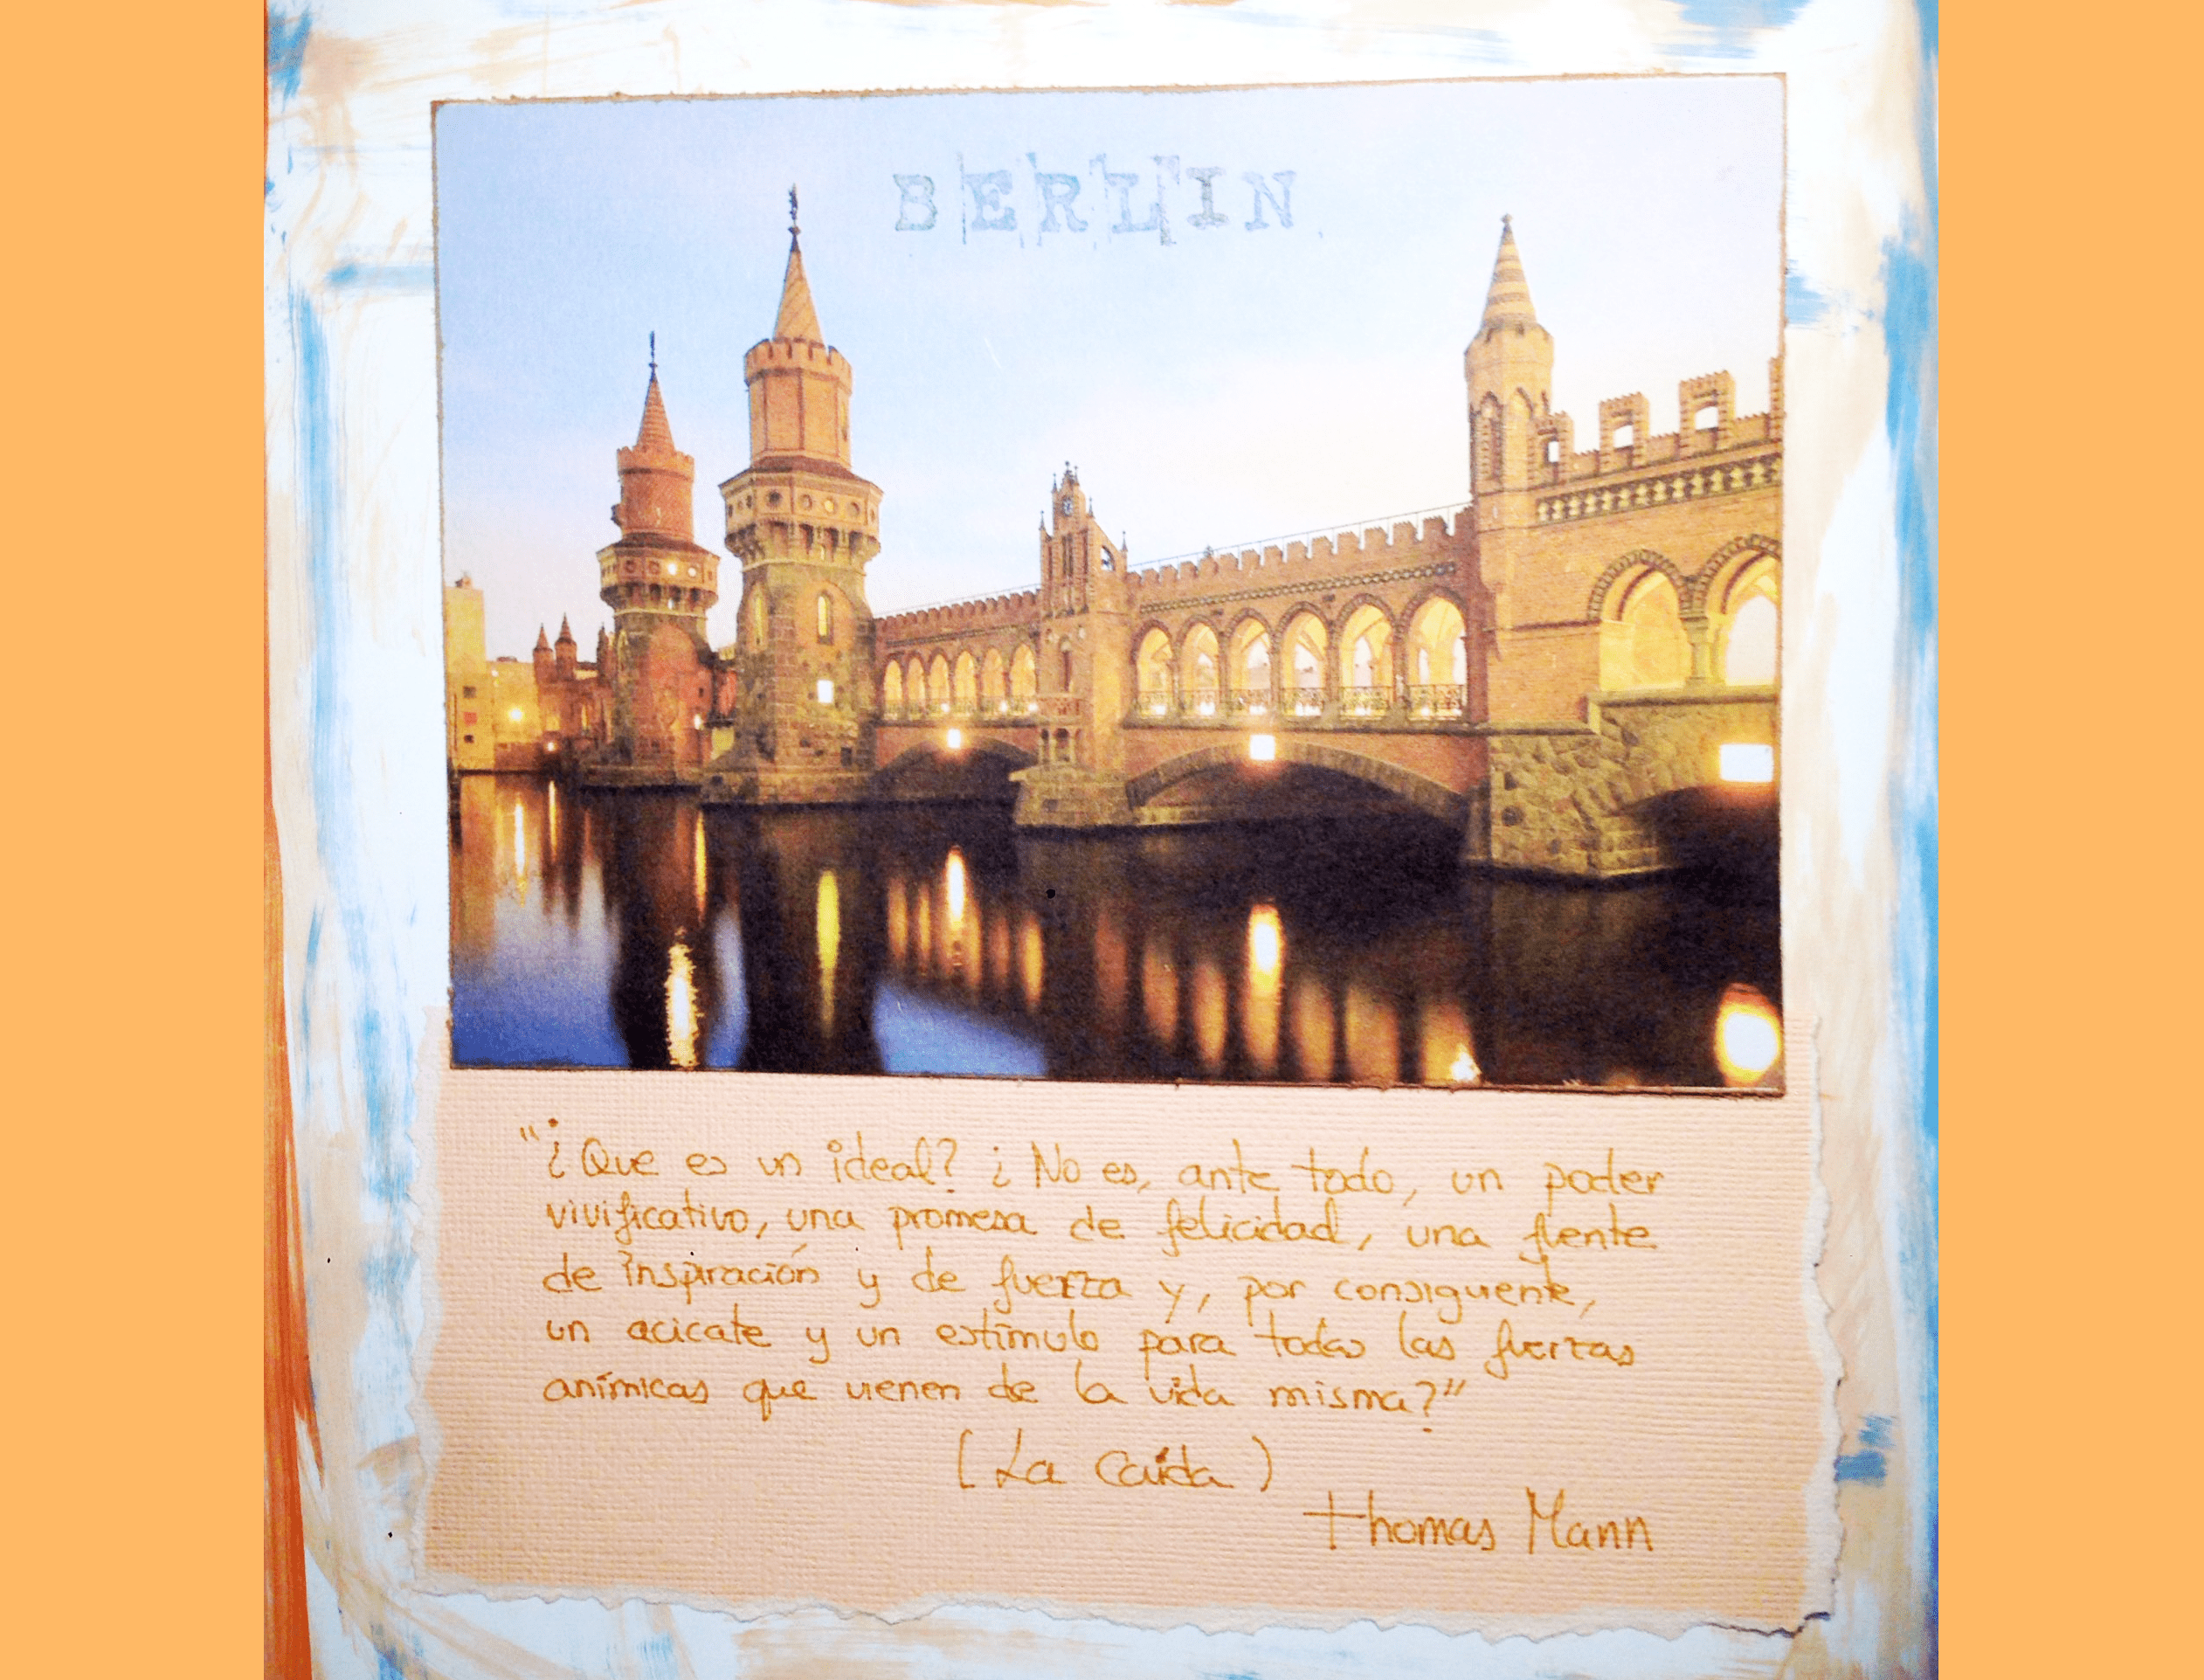 BERLIN
"¿Que es un ideal? ¿No es, ante todo, un poder
vivificativo, una promesa de felicidad, una fuente
de inspiración y de fuerza y, por consiguente,
un acicate y un estímulo para todas las fuerzas
anímicas que vienen de la vida misma?"
(La Caída)
Thomas Mann